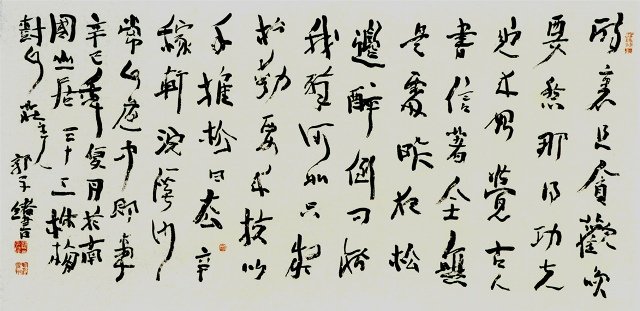 醉裏且貪歡笑
要愁那得功夫
近来始覺古人
書信著全無
是處昨夜松
邊醉倒问松
我醉何如只疑
松動要来扶以
手推松曰去辛
稼軒浣溪沙
常山道中即事
辛巳年夏月於南
國山居三十三株梅
樹山莊主人
郭子緒書